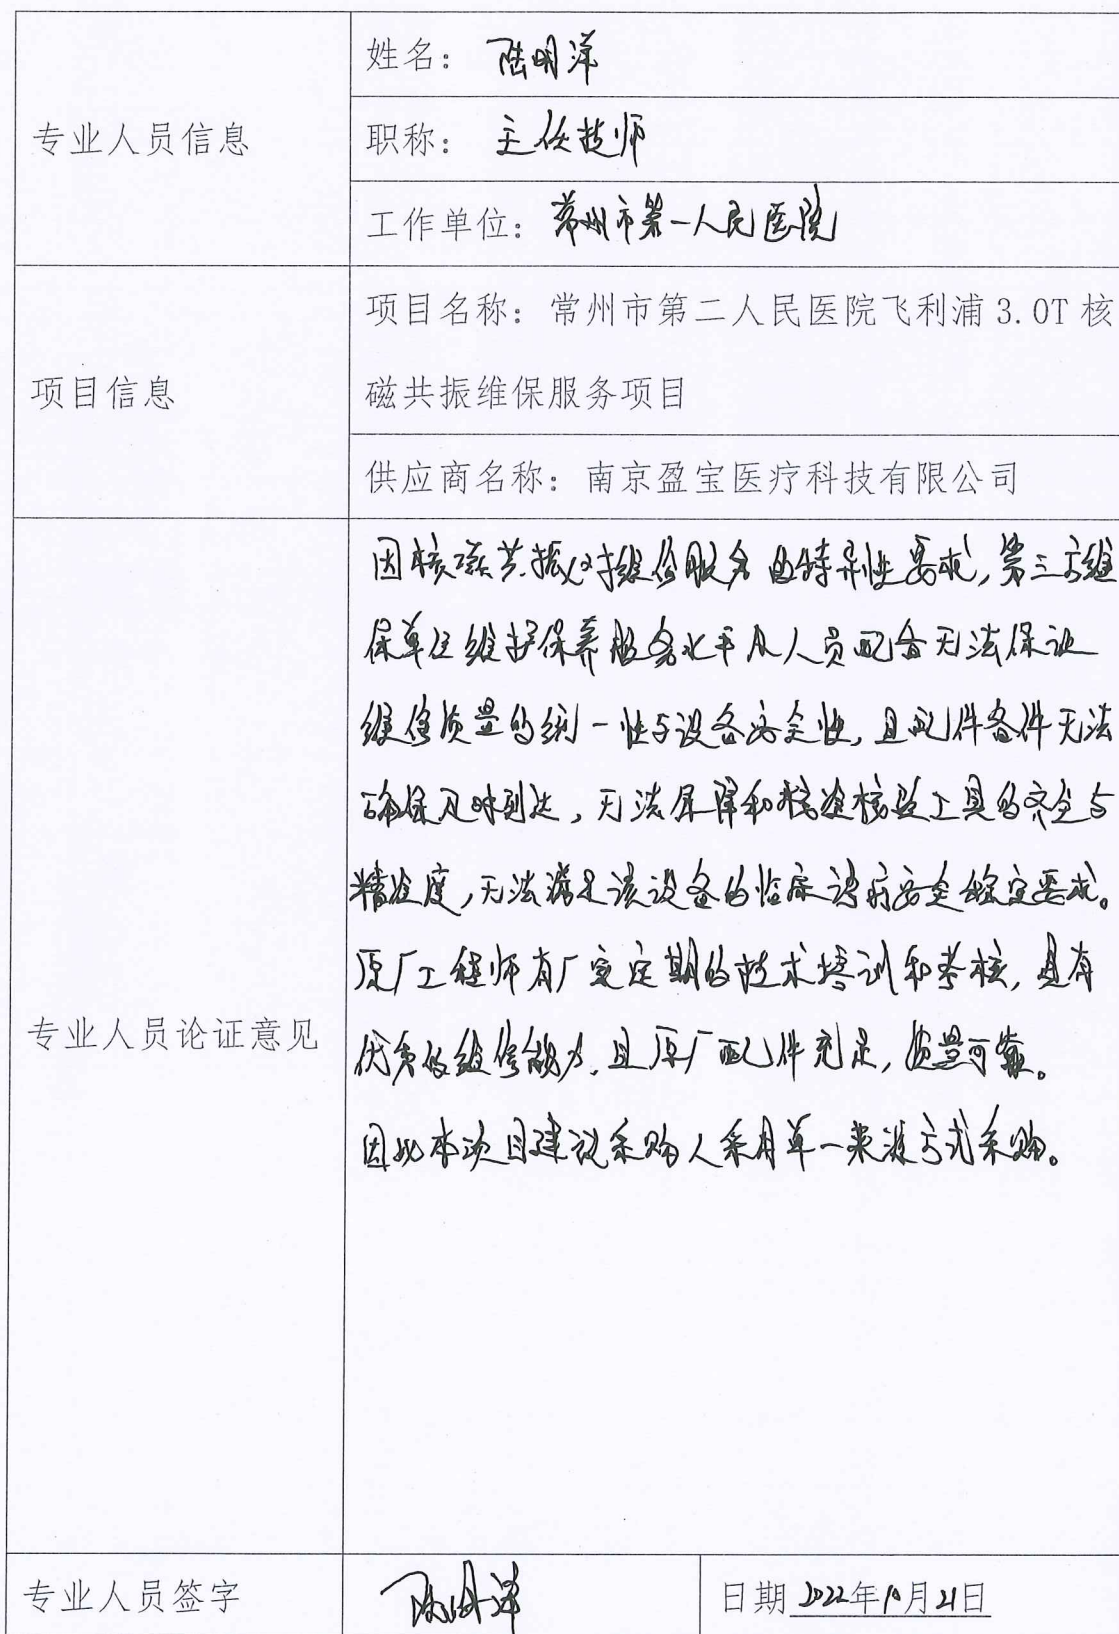 专业人员信息
姓名：陆明洋
职称：主任技师
工作单位：常州市第一人民医院
项目信息
项目名称：常州市第二人民医院飞利浦 3.0T 核
磁共振维保服务项目
供应商名称：南京盈宝医疗科技有限公司
专业人员论证意见
因核磁共振对维修服务的特异性要求，第三方维
保单位维护保养服务水平及人员配备无法保证
维修质量的统一性与设备安全性，且配件备件无法
确保及时到达，无法保障和校准检验工具的齐全与
精准度，无法满足该设备的临床诊疗安全稳定要求。
原厂工程师有厂家定期的技术培训和考核，具有
优秀的维修能力，且原厂配件充足，质量可靠。
因此本项目建议采购人采用单一来源方式采购。
专业人员签字
陆明洋
日期 2022年10月21日